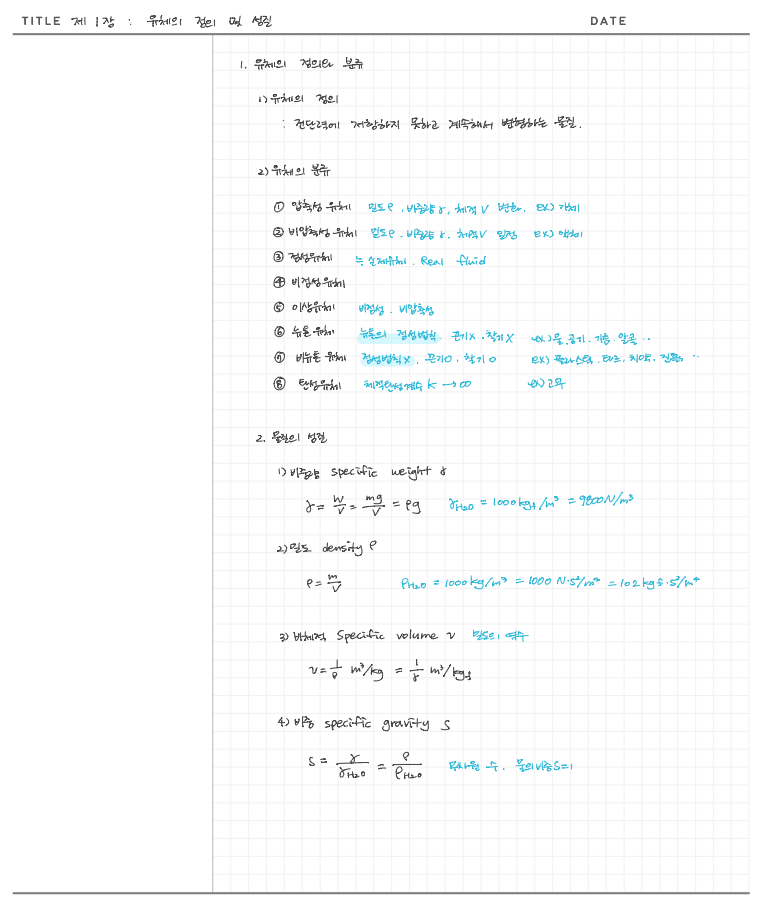 TITLE 제 1장 : 유체의 정의 및 성질 DATE
1. 유체의 정의와 분류
1) 유체의 정의
: 전단력에 저항하지 못하고 계속해서 변형하는 물질.
2) 유체의 분류
① 압축성 유체 밀도 ρ, 비중량 γ, 체적 V 변화. ex) 기체
② 비압축성 유체 밀도 ρ, 비중량 γ, 체적 V 일정 ex) 액체
③ 점성유체 실제유체, Real fluid
④ 비점성유체
⑤ 이상유체 비점성, 비압축성
⑥ 뉴톤 유체 뉴톤의 점성법칙, 끈기X, 찰기X ex) 물, 공기, 기름, 알콜 ..
⑦ 비뉴톤 유체 점성법칙X, 끈기O, 찰기O ex) 플라스틱, 타르, 치약, 진흙, ..
⑧ 탄성유체 체적탄성계수 K → ∞ ex) 고무
2. 물질의 성질
1) 비중량 specific weight γ
γ = W/V = mg/V = ρg γH₂O = 1000 kgf/m³ = 9800 N/m³
2) 밀도 density ρ
ρ = m/V ρH₂O = 1000 kg/m³ = 1000 N·s²/m⁴ = 102 kgf·s²/m⁴
3) 비체적 Specific volume v 밀도의 역수
v = 1/ρ m³/kg = 1/γ m³/kgf
4) 비중 specific gravity S
S = γ/γH₂O = ρ/ρH₂O 무차원 수. 물의 비중 S=1